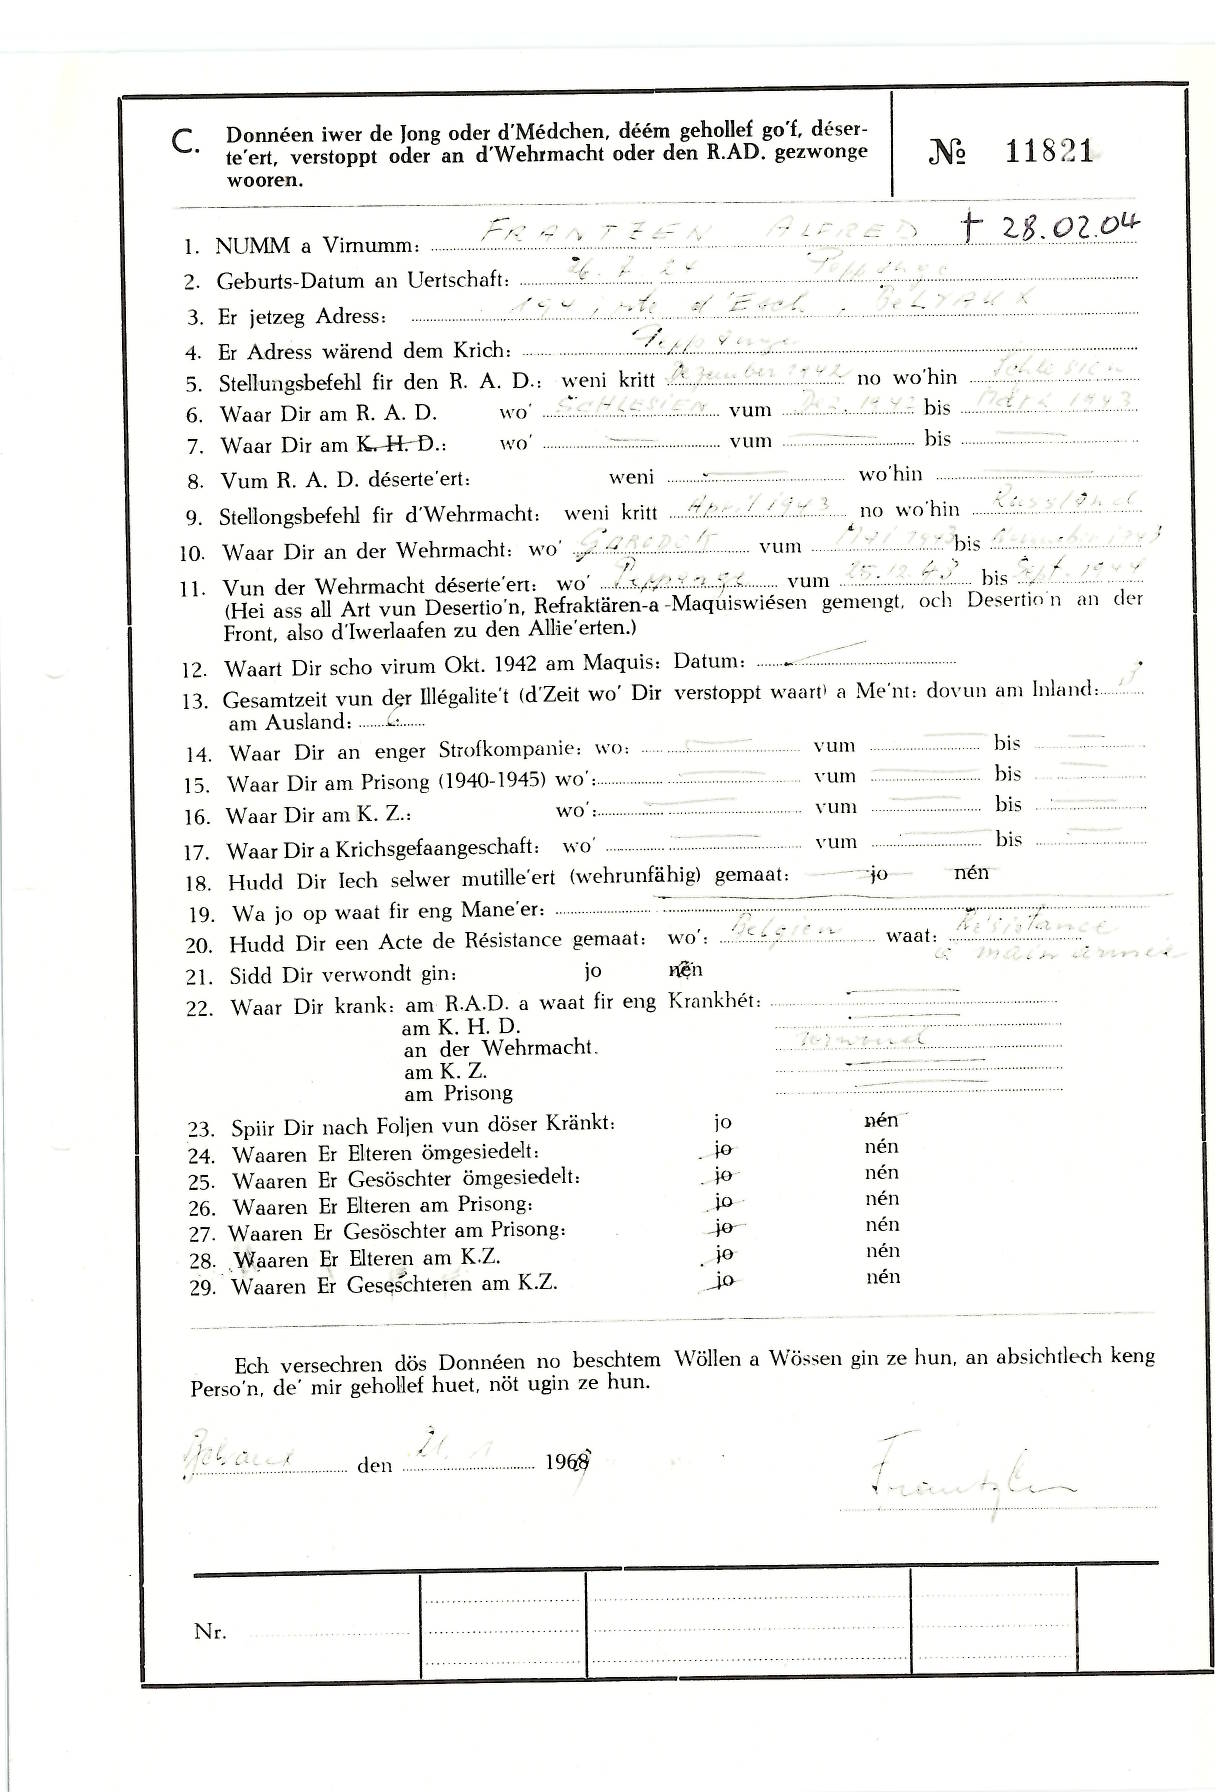 C. Donnéen iwer de Jong oder d'Médchen, déém gehollef go'f, déser-
te'ert, verstoppt oder an d'Wehrmacht oder den R.AD. gezwonge
wooren.
№ 11821
1. NUMM a Virnumm: FRANTZEN ALFRED † 28.02.04
2. Geburts-Datum an Uertschaft: 26.7.24 Peppange
3. Er jetzeg Adress: 194, rte d'Esch, BELVAUX
4. Er Adress wärend dem Krich: Peppange
5. Stellungsbefehl fir den R. A. D.: weni kritt Dezember 1942 no wo'hin Schlesien
6. Waar Dir am R. A. D. wo' SCHLESIEN vum Dez. 1942 bis März 1943
7. Waar Dir am K. H. D.: wo' vum bis
8. Vum R. A. D. déserte'ert: weni wo'hin
9. Stellongsbefehl fir d'Wehrmacht: weni kritt April 1943 no wo'hin Russland
10. Waar Dir an der Wehrmacht: wo' vum Mai 1943 bis 1943
11. Vun der Wehrmacht déserte'ert: wo' Peppange vum 25.12.43 bis Sept. 1944
(Hei ass all Art vun Desertio'n, Refraktären-a-Maquiswiésen gemengt, och Desertio'n an der
Front, also d'Iwerlaafen zu den Allie'erten.)
12. Waart Dir scho virum Okt. 1942 am Maquis: Datum:
13. Gesamtzeit vun der Illégalite't (d'Zeit wo' Dir verstoppt waart) a Me'nt: dovun am Inland: 3
am Ausland: 6
14. Waar Dir an enger Strofkompanie: wo: vum bis
15. Waar Dir am Prisong (1940-1945) wo': vum bis
16. Waar Dir am K. Z.: wo': vum bis
17. Waar Dir a Krichsgefaangeschaft: wo' vum bis
18. Hudd Dir Iech selwer mutille'ert (wehrunfähig) gemaat: jo nén
19. Wa jo op waat fir eng Mane'er:
20. Hudd Dir een Acte de Résistance gemaat: wo': Belgien waat: Résistance
à main armée
21. Sidd Dir verwondt gin: jo nén
22. Waar Dir krank: am R.A.D. a waat fir eng Krankhét:
am K. H. D.
an der Wehrmacht. verwond
am K. Z.
am Prisong
23. Spiir Dir nach Foljen vun döser Kränkt: jo nén
24. Waaren Er Elteren ömgesiedelt: jo nén
25. Waaren Er Gesöschter ömgesiedelt: jo nén
26. Waaren Er Elteren am Prisong: jo nén
27. Waaren Er Gesöschter am Prisong: jo nén
28. Waaren Er Elteren am K.Z. jo nén
29. Waaren Er Geseschteren am K.Z. jo nén
Ech versechren dös Donnéen no beschtem Wöllen a Wössen gin ze hun, an absichtlech keng
Perso'n, de' mir gehollef huet, nöt ugin ze hun.
Belvaux den 21. 1 1969
Frantzen
Nr.